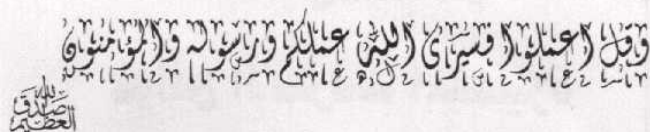 وقل اعملوا فسيرى الله عملكم ورسوله والمؤمنون
صدق الله العظيم